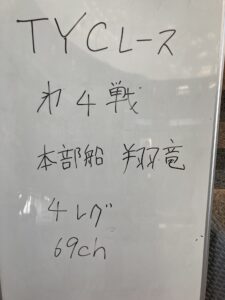 TYCレース
才4戦
本部船 翔竜
4レグ
69ch